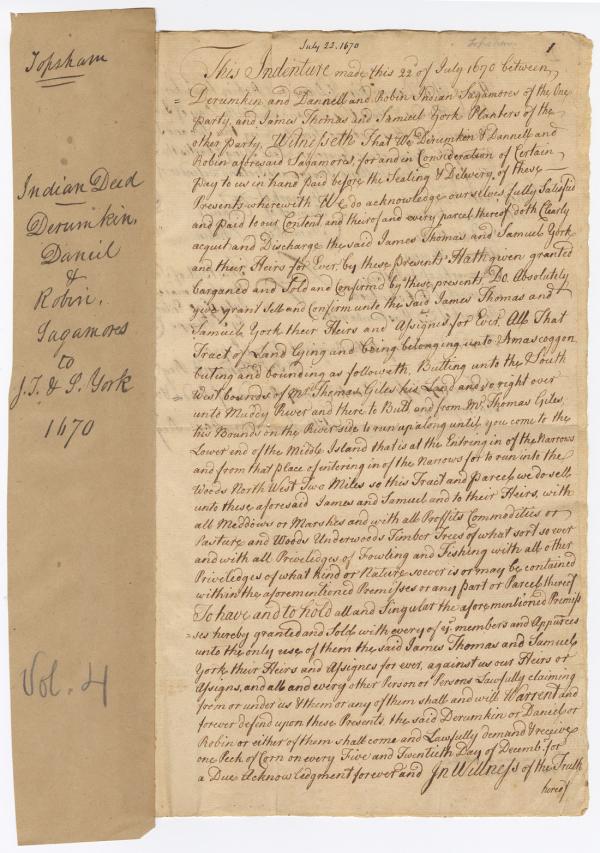 Topsham
Indian Deed
Derumkin,
Daniel
&
Robin,
Sagamores
to
J.T. & S. York
1670
Vol. 4
July 22. 1670
Topsham
1
This Indenture made this 22d of July 1670 between
Derumkin and Dannell and Robin Indian Sagamores of the One
party, and James Thomas and Samuel York Planters of the
other party, Witnesseth That We Derumkin & Dannell and
Robin aforesaid Sagamores for and in Consideration of Certain
pay to us in hand paid before the Sealing & Delivery of these
Presents wherewith We do acknowledge ourselves fully Satisfied
and paid to our Content and theirof and every parcel thereof doth Clearly
acquit and Discharge the said James Thomas and Samuel York
and their Heirs for Ever by these presents Hath given granted
barganed and Sold and Confirm'd by these presents Do Absolutely
give grant Sell and Confirm unto the Said James Thomas and
Samuel York their Heirs and Assignes for Ever, All That
Tract of Land lying and being belonging unto Amascoggon
buting and bounding as followeth, Butting unto the South
West bounds of Mr. Thomas Giles his Land and so right over
unto Muddy River and there to Butt and from Mr. Thomas Giles
his Bounds on the River side to run up along until you come to the
Lower end of the Middle Island that is at the Entring in of the Narrows
and from that place of entering in of the Narrows for to run into the
Woods North West Two Miles so this Tract and Parcel we do sell
unto these aforesaid James and Samuel and to their Heirs, with
all Meddows or Marshes and with all Proffits Commodities or
Pasture and Woods Underwoods Timber Trees of what sort so ever
and with all Priviledges of Fowling and Fishing with all other
Priviledges of what kind or Nature soever is or may be contained
within the aforementioned Premisses or any part or Parcel thereof
To have and to hold all and Singular the aforementioned Premiss
ses hereby granted and Sold with every of ye. members and Appurces
unto the only use of them the said James Thomas and Samuel
York their Heirs and Assignes for ever, against us our Heirs or
Assigns, and all and every other Person or Persons Lawfully claiming
from or under us & them or any of them shall and will Warrent and
forever defend upon these Presents the said Derumkin or Daniel or
Robin or either of them shall come and Lawfully demand & receive
one Peck of Corn on every Five and Twentieth Day of Decemb. for
a Due Acknowledgment forever and In Wittness of the Truth
hereof